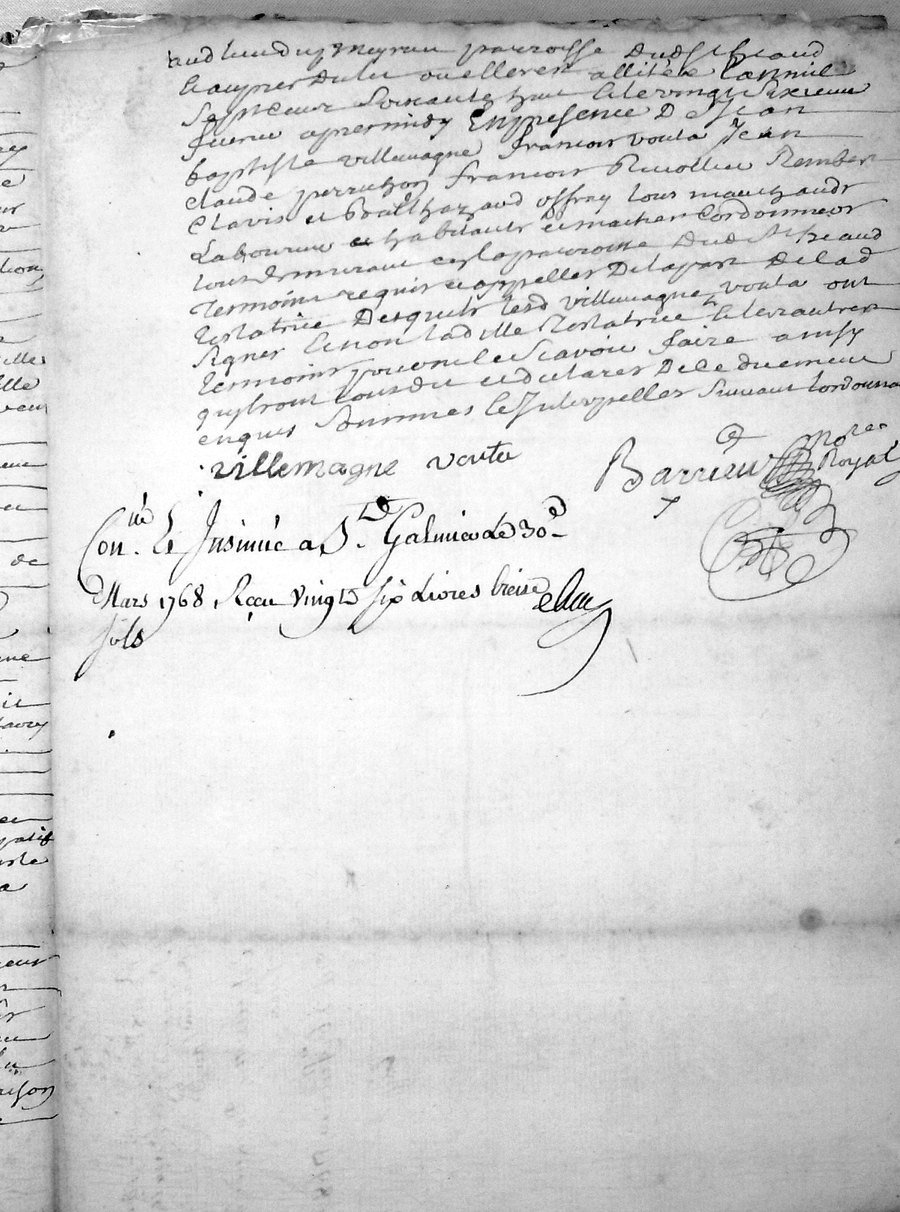 aud lieu du meyrau parroisse dud St heaud
aupres du lit ou elle est allitée lannuel
Sept cent Soixante huit le vingt Sixieme
fevrie apres midy En presence De Jean
baptiste villemagne francois vouta Jean
claude perrichon francois Rivollier Rember
Clavis et Balthazard offrey tous marchands
Laboureur et habitants et mathieu Cordonnier
tous demurant en la parroisse Dud St heaud
Temoins requis et appellés De la part De lad
Testatrice Desquels lesd villemagne, vouta ont
Signer Et non lad dlle Testatrice Et les autres
Temoins pour ne le Scavoir faire ainsy
quils ont tous dit et declarer De ce duement
enquis Sommes et Interpeller Suivant Lordonna
villemagne vouta Barrieu no.re Royal
Con.lé Et Insinué a S.t Galmier le 30e
Mars 1768 Reçu Vingt Six Livres treise
sols